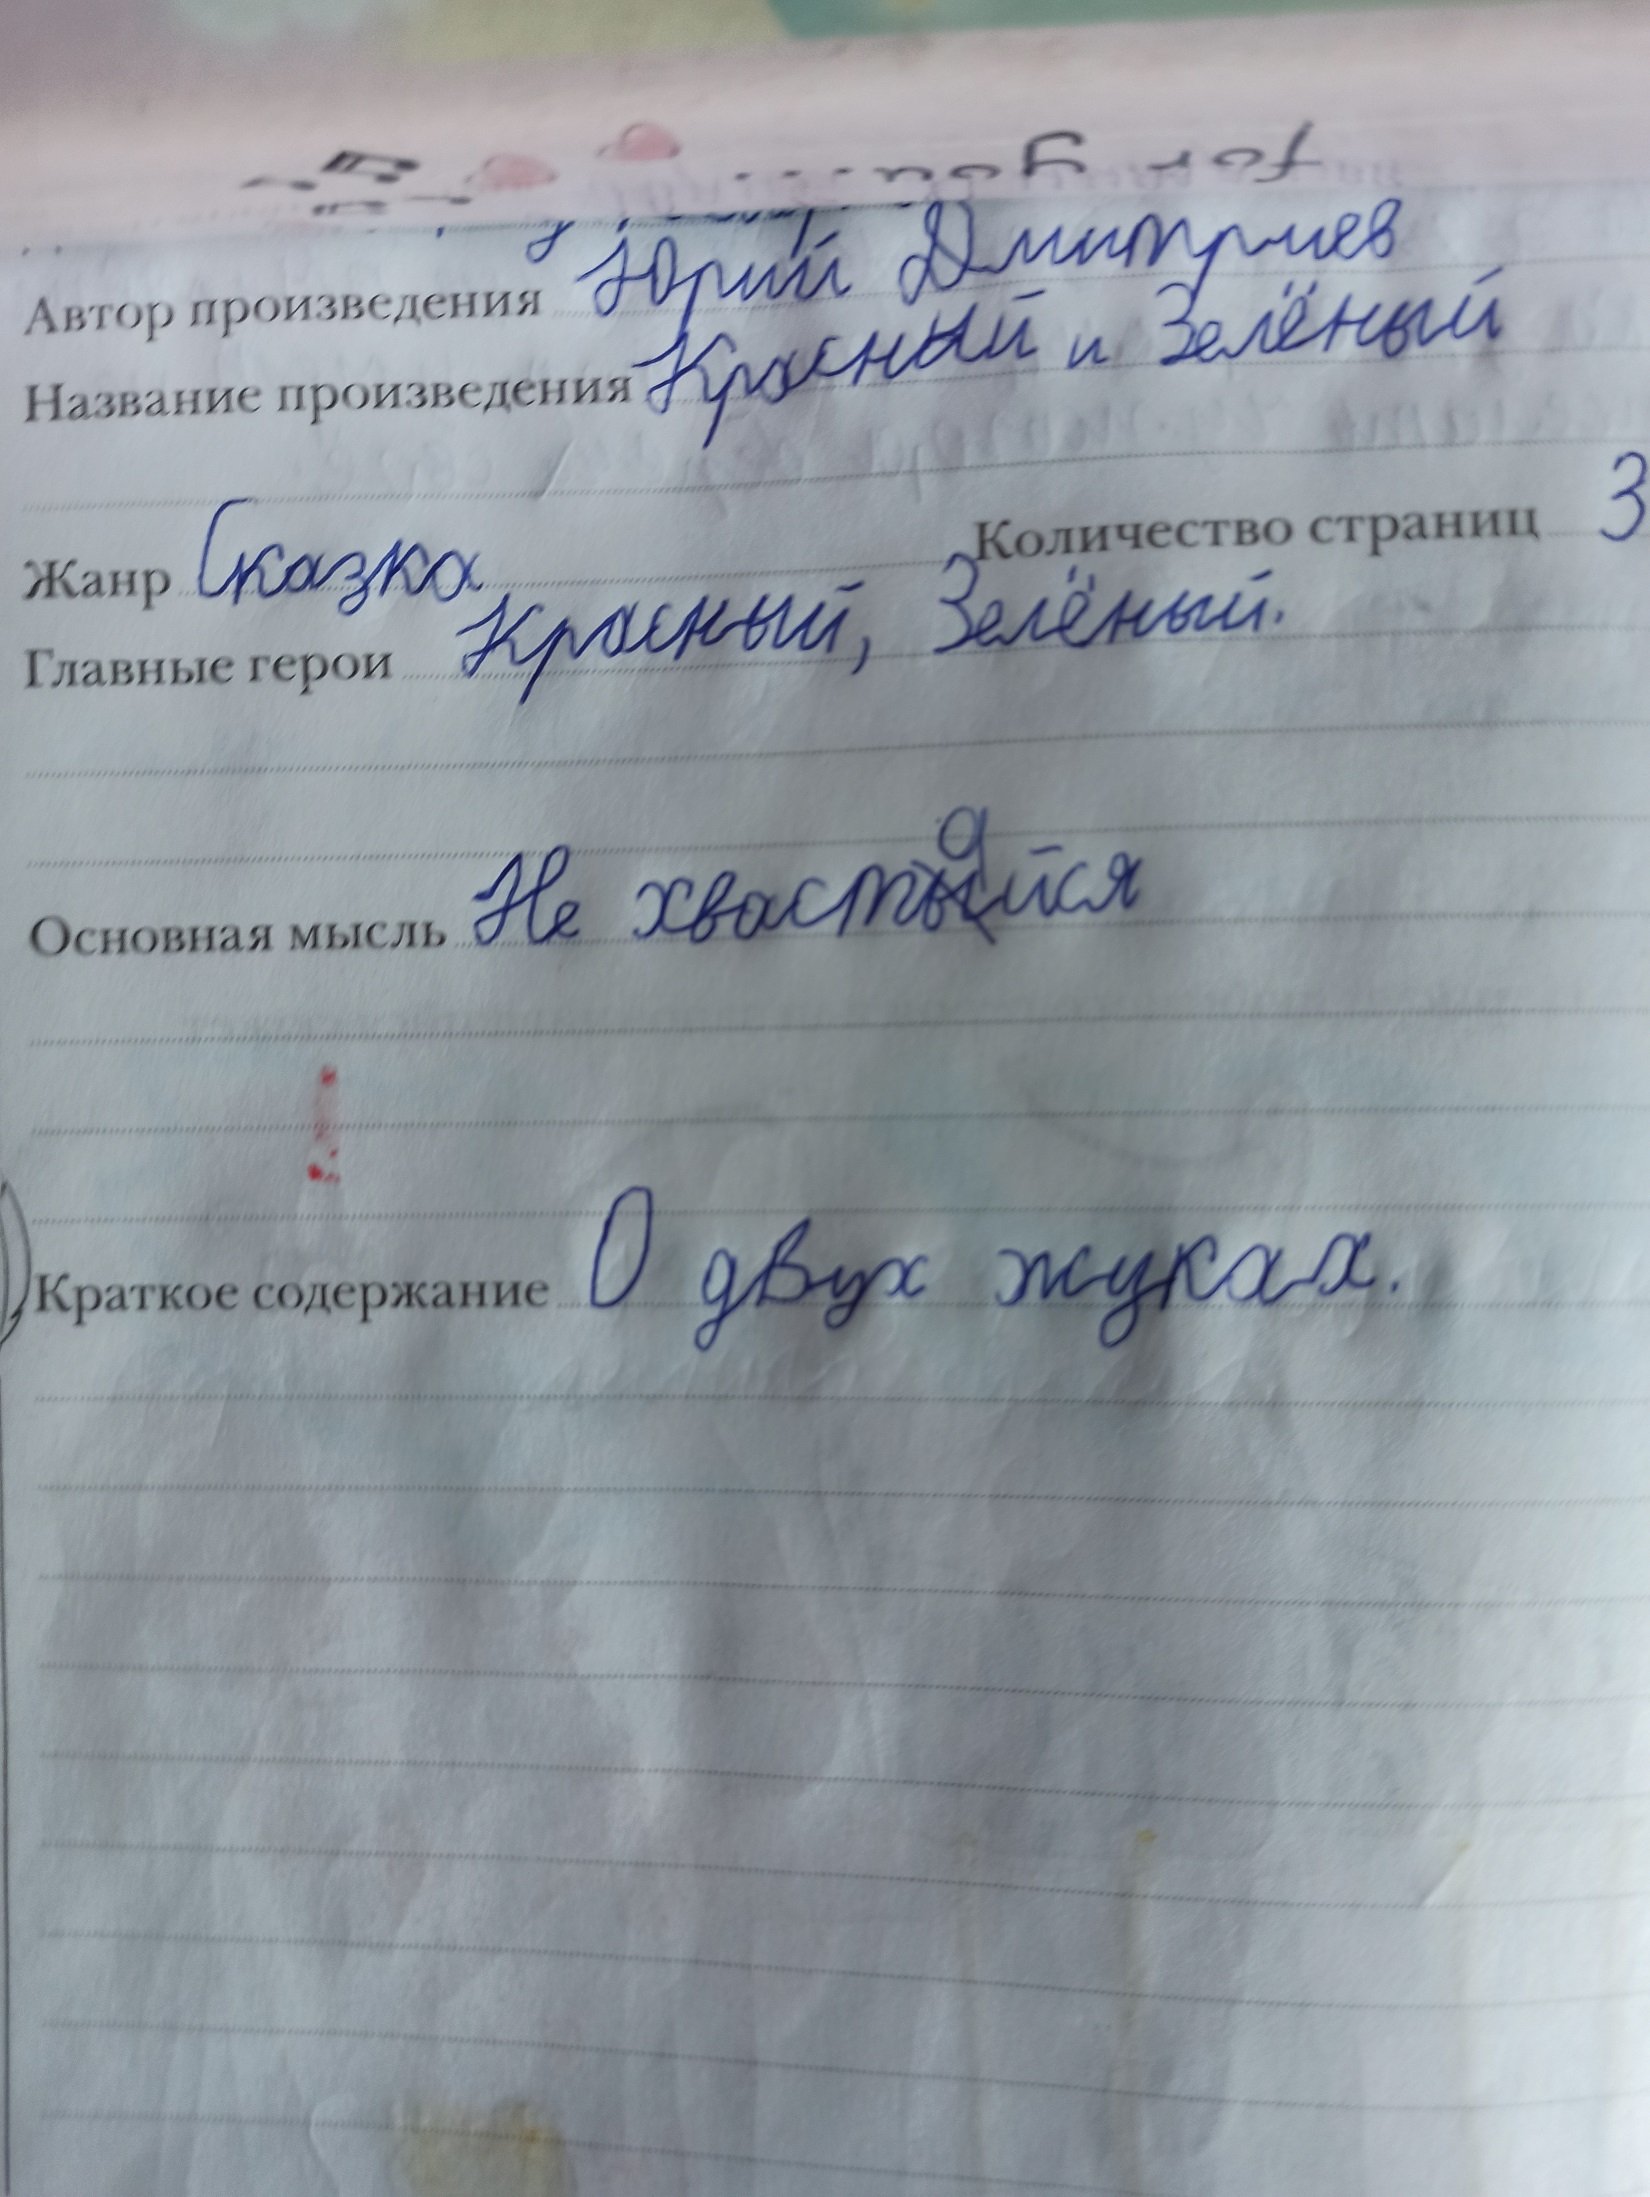 for you...
Автор произведения Юрий Дмитриев
Название произведения Красный и Зелёный
Жанр Сказка Количество страниц 3
Главные герои Красный, Зелёный.
Основная мысль Не хвастайся
Краткое содержание О двух жуках.